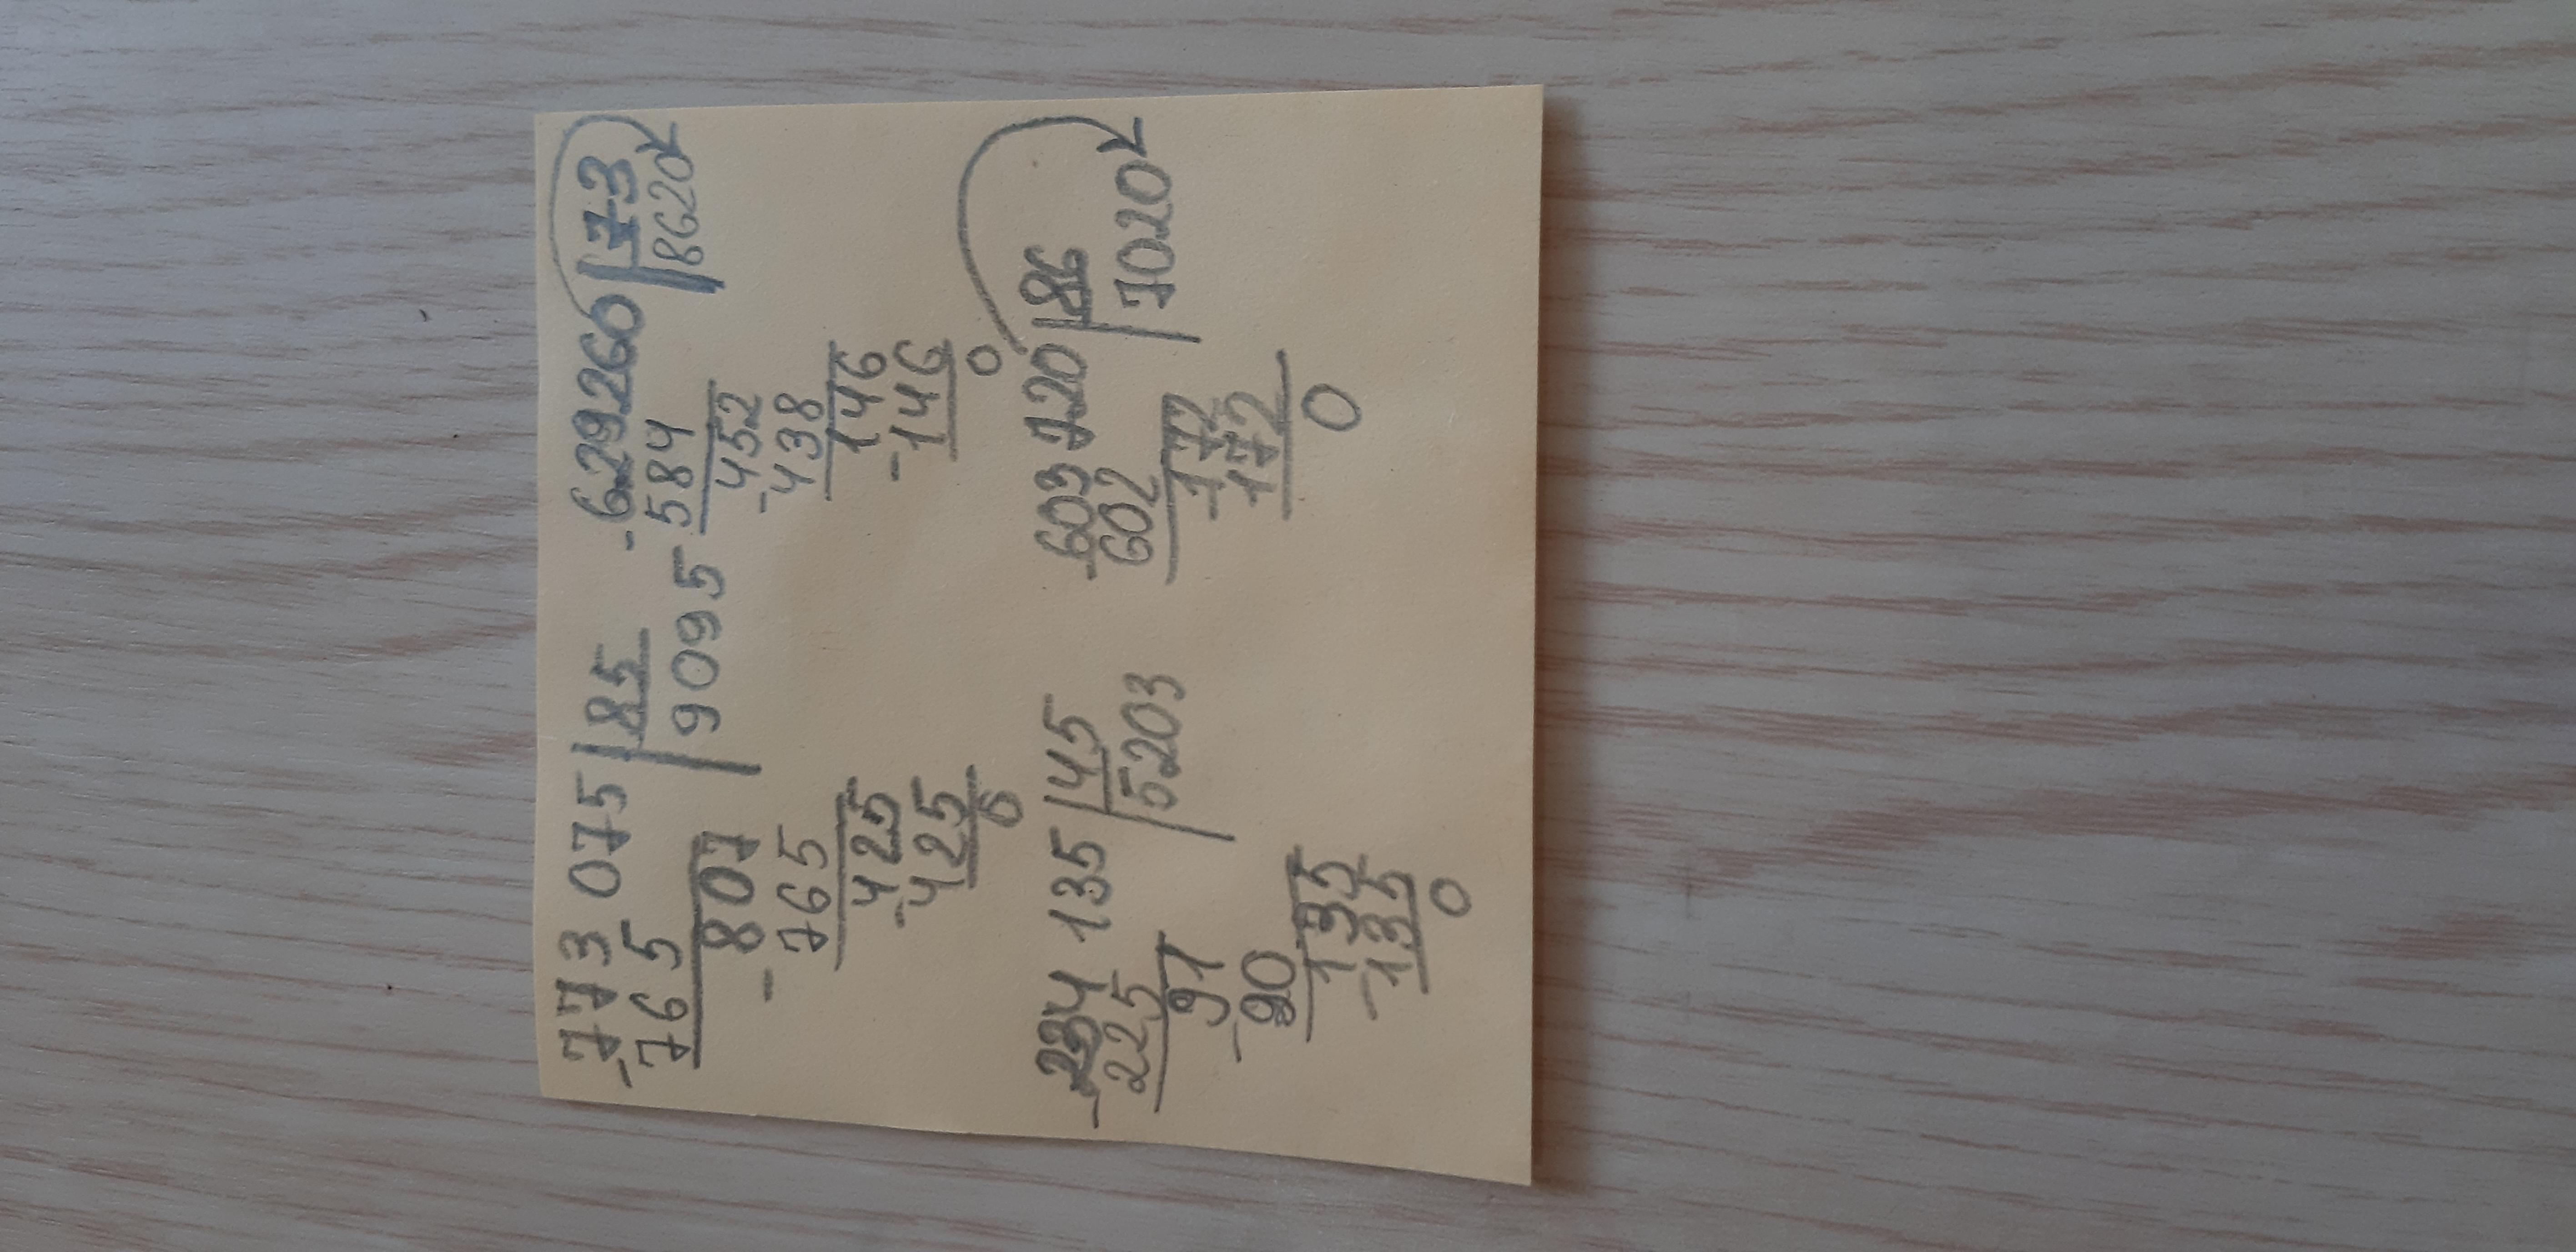 -773 075 | 85
765 | 9095
-807
765
-425
425
0
-629260 | 73
584 | 8620
-452
438
-146
146
0
-234 135 | 45
225 | 5203
-91
90
-135
135
0
-603 720 | 86
602 | 7020
-172
172
0